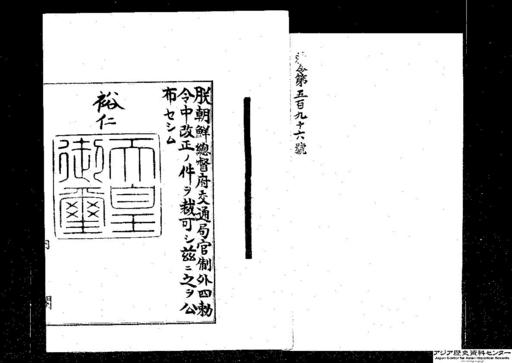 令第五百九十六號
朕朝鮮總督府交通局官制外四勅
令中改正ノ件ヲ裁可シ茲ニ之ヲ公
布セシム
裕仁
天皇
御璽
内
閣
アジア歴史資料センター
Japan Center for Asian Historical Records